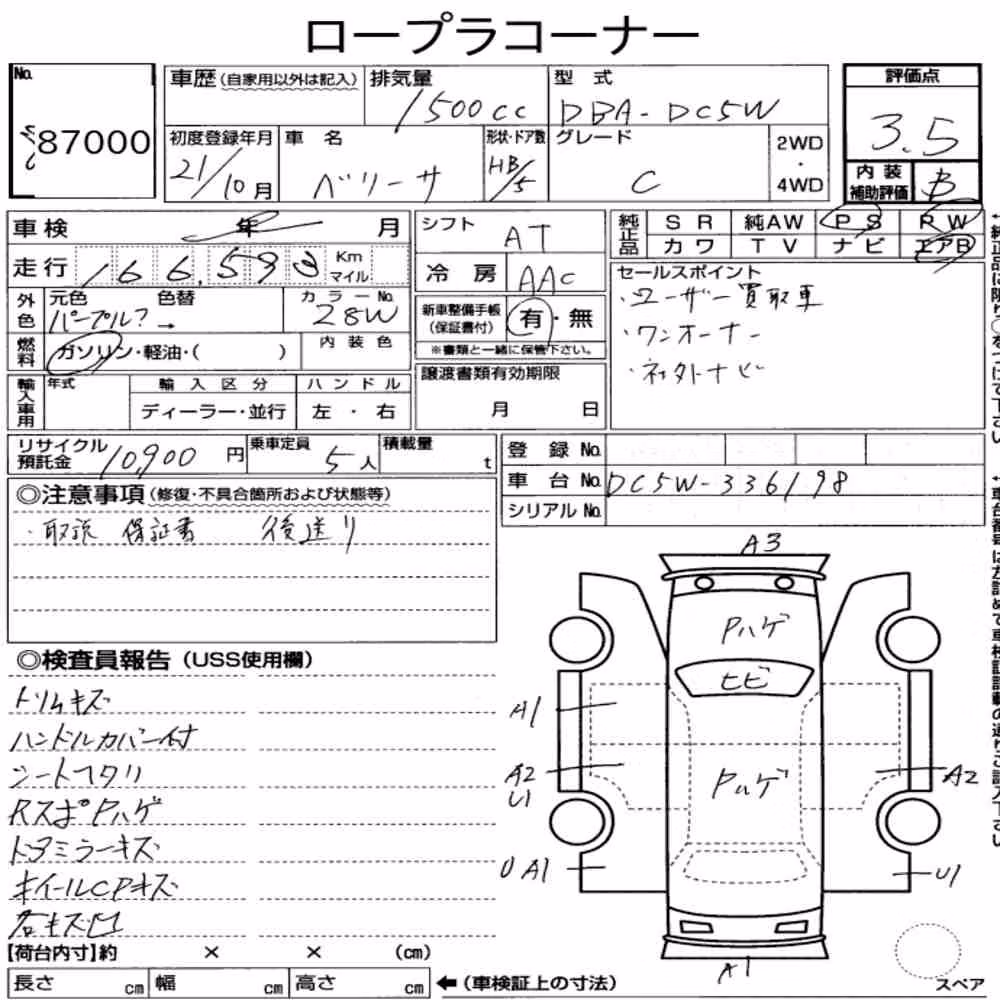 ロープラコーナー
No.
87000
車歴 (自家用以外は記入)
排気量
1500cc
型式
DBA-DC5W
評価点
3.5
初度登録年月
21/10月
車名
ベリーサ
形状・ドア数
HB/5
グレード
C
2WD
・
4WD
内装
補助評価
B
車検 年 月
走行 166,593 Km マイル
シフト
AT
冷房
AAC
純正品
SR 純AW PS PW
カワ TV ナビ エアB
外色
元色 色替
パープル?→
カラーNo.
28W
新車整備手帳
(保証書付)
有・無
※書類と一緒に保管下さい。
セールスポイント
・ユーザー買取車
・ワンオーナー
・社外ナビ
燃料
ガソリン・軽油・( )
内装色
輸入車用
年式
輸入区分
ハンドル
ディーラー・並行
左・右
譲渡書類有効期限
月 日
リサイクル
預託金
10,900円
乗車定員
5人
積載量
t
登録No.
車台No. DC5W-336198
シリアルNo.
◎注意事項 (修復・不具合箇所および状態等)
・取説 保証書 後送り
◎検査員報告 (USS使用欄)
トリムキズ
ハンドルカバー付
シートヘタリ
RスポPハゲ
ドアミラーキズ
ホイールCPキズ
各キズ凹
A3
Pハゲ
ヒビ
A1
Pハゲ
A2
U1
A2
U A1
U1
A1
スペア
【荷台内寸】約 × × (cm)
長さ cm 幅 cm 高さ cm
←(車検証上の寸法)